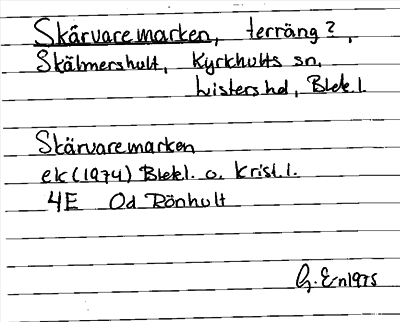 Skärvaremarken, terräng?,
Skälmershult, Kyrkhults sn,
Listers hd, Blek. l.
Skärvaremarken
ek (1974) Blek l. o. Krist. l.
4E Od Rönhult
G. En 1975